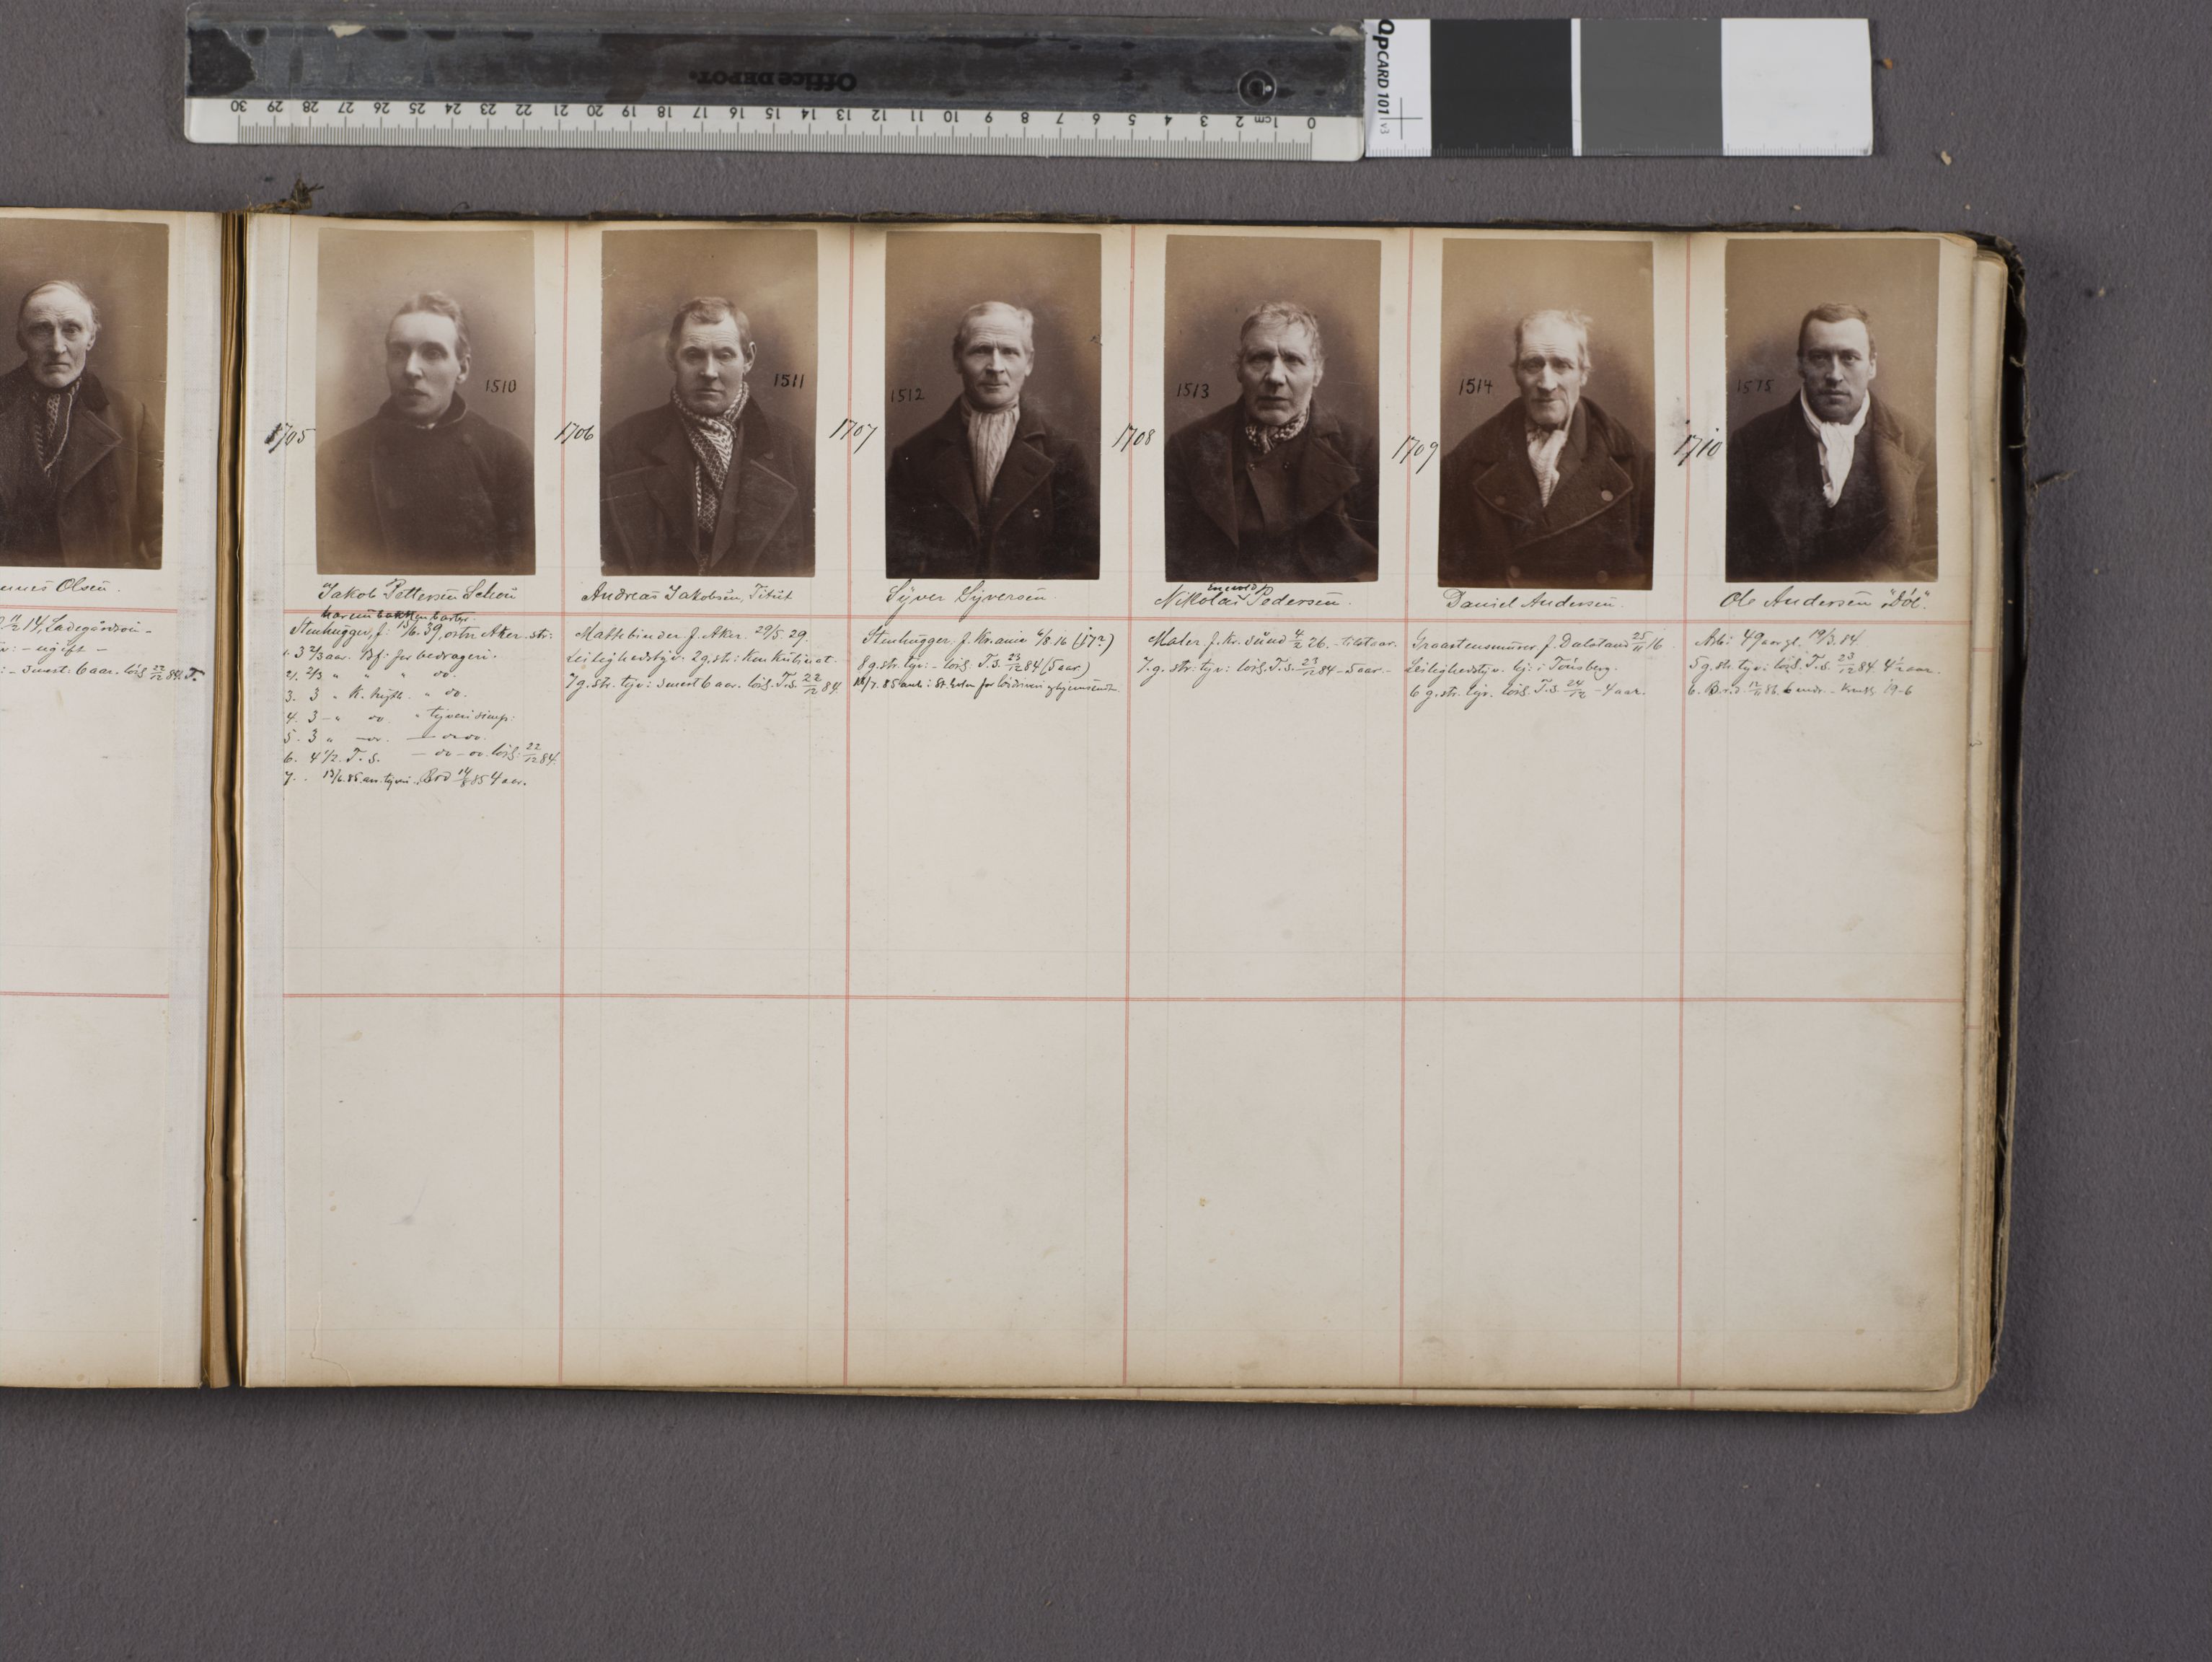 Office DEPOT.
30 29 28 27 26 25 24 23 22 21 20 19 18 17 16 15 14 13 12 11 10 9 8 7 6 5 4 3 2 1 cm 0
QPCARD 101 v3
Olsen.
14, Ladegårdsöen -
- ugift -
- senest 6 aar. lösl. 22/12 84. T.
1705
1510
Jakob Pettersen Schou
Stenhugger, f: 15/6. 39, östre Aker. str:
1. 3 2/3 aar. Bf: for bedrageri.
2. 2/3 " " " do.
3. 3 " K. " do.
4. 3 - " do. " tyveri simp:
5. 3 " - do. - do do.
6. 4 1/2. T. S. - do - do. lösl: 22/12 84.
7. 13/6. 85 an. tyveri. 14/8 85 4 aar.
1706
1511
Andreas Jakobsen, Titut
Mattebinder f. Aker. 29/5. 29.
Leilighedstyv. 2 g. str: Konkubinat.
7 g. str. tyv: senest 6 aar. lösl. T.S. 22/12 84
1707
1512
Syver Syversen.
Stenhugger. f. Kr.ania 6/8 16 (17?)
8 g. str. tyv: - lösl. T. S. 23/12 84 (5 aar)
1708
1513
Nikolai Pedersen.
Maler f. Kr. sund 4/2 26.
7. g. str. tyv: lösl. T. S. 23/12 84 - 5 aar. -
1709
1514
Daniel Andersen.
f. Dalsland 25/11 16
Leilighedstyv. bj: i Tönsberg.
6 g. str. tyv. lösl. T. S. 24/12 - 4 aar.
1710
1515
Ole Andersen "Döl".
Arb: 49 aar gl. 19/3. 84
5 g. str. tyv: lösl. T. S. 23/12 84 4 1/2 aar.
6. 12/11 86. 6 mdr. - 19-6